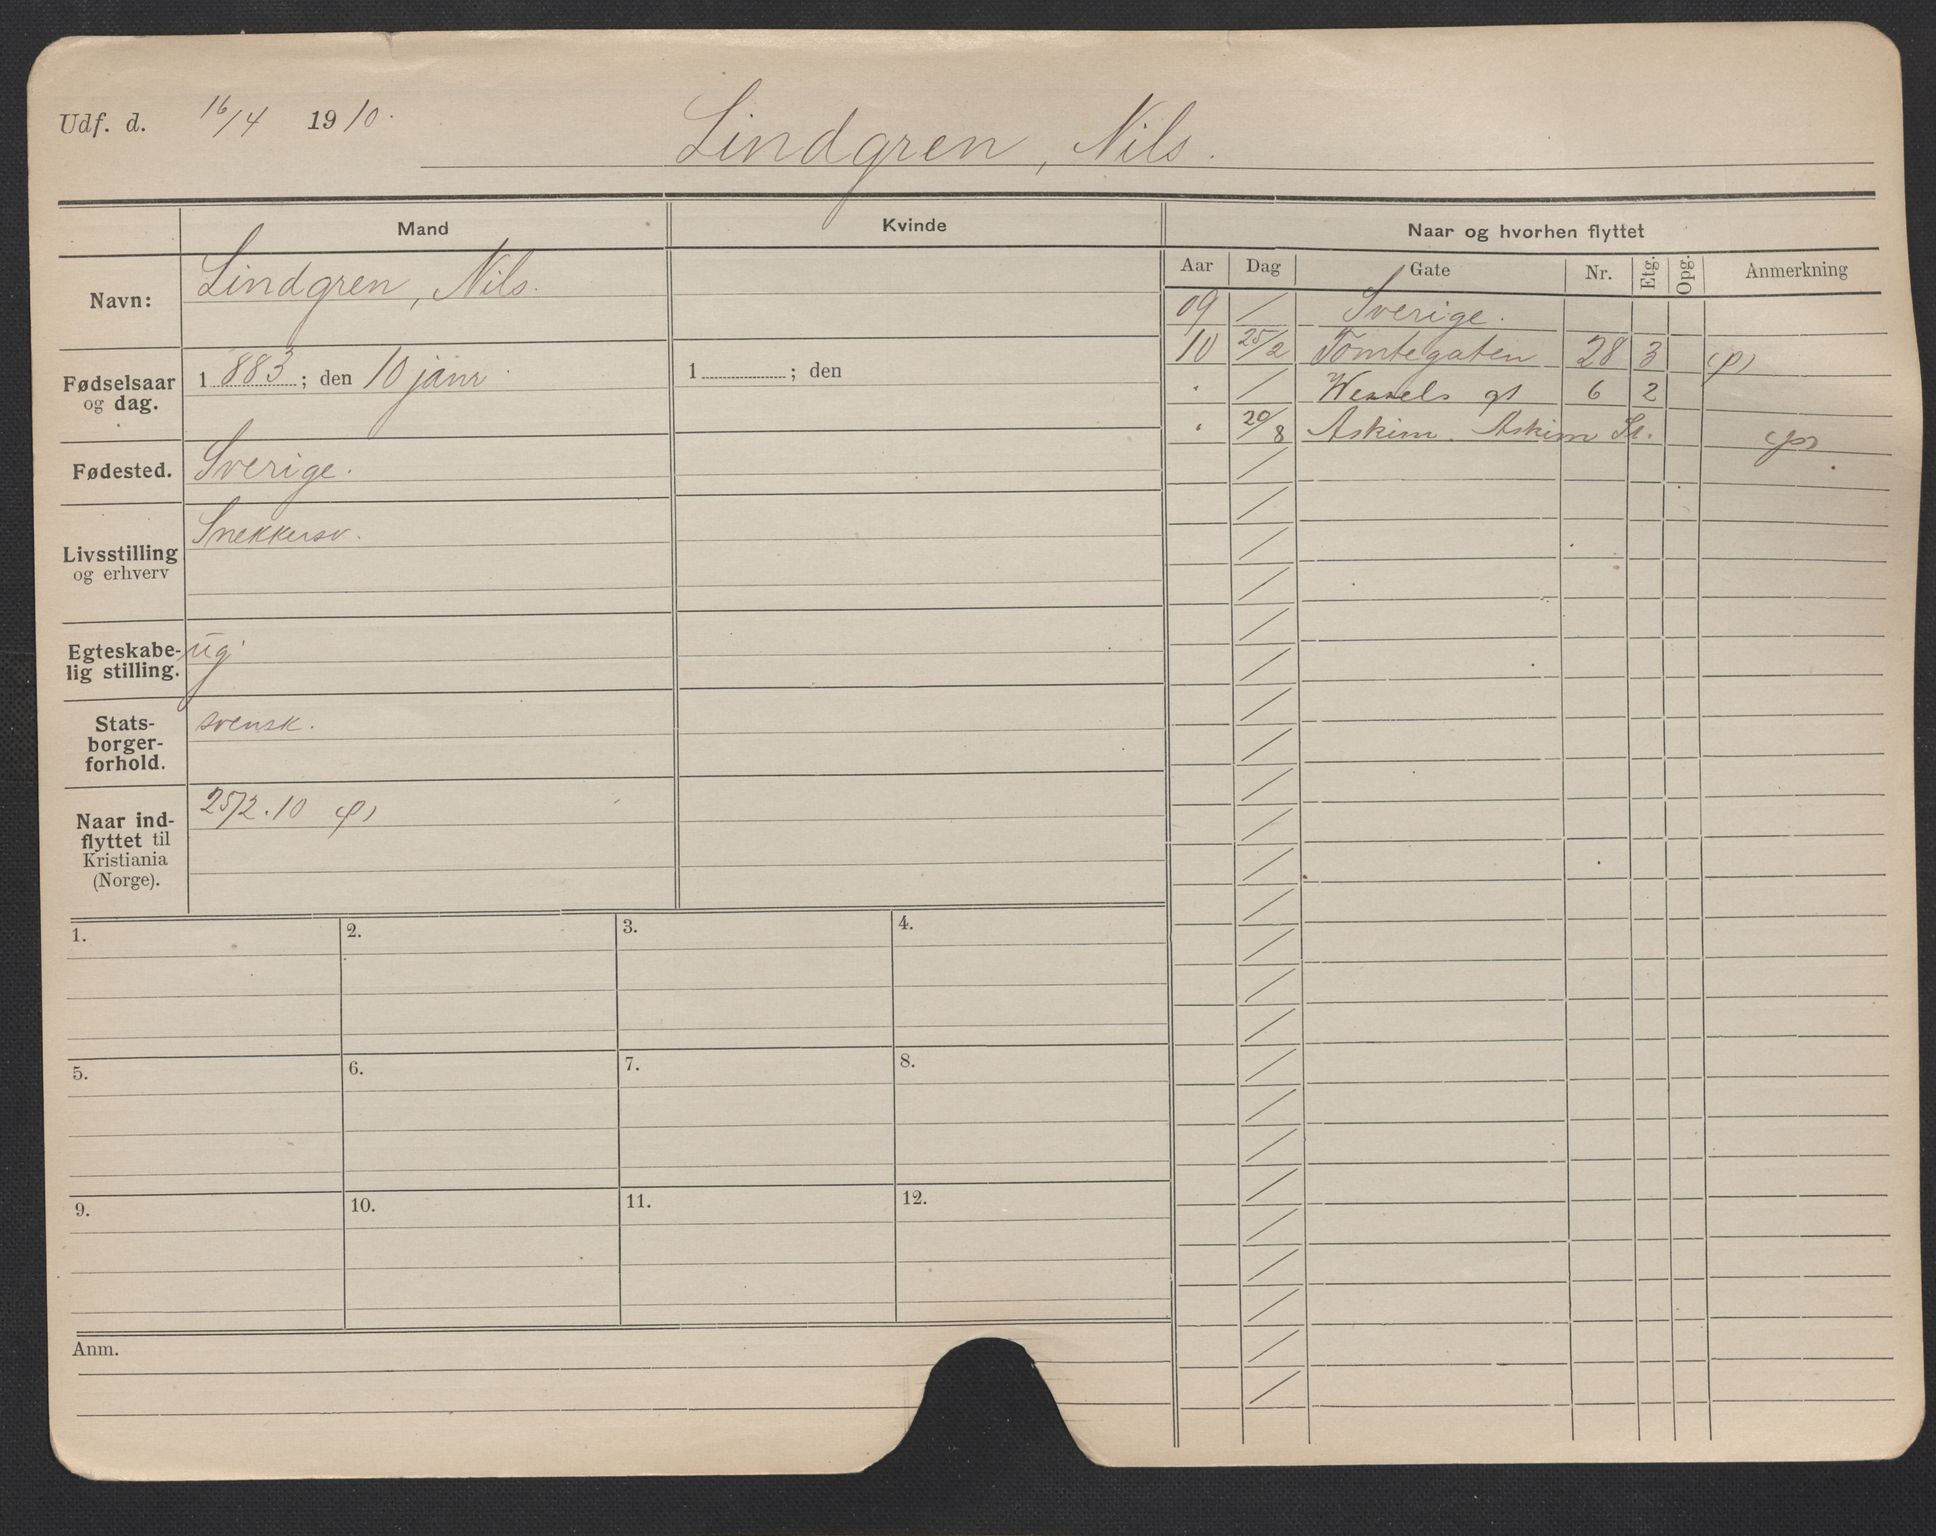 Udf. d. 16/4 1910.
Lindgren, Nils.
Mand
Kvinde
Naar og hvorhen flyttet
Navn: Lindgren, Nils.
Fødselsaar og dag. 1883; den 10 janr.
1 ; den
Fødested. Sverige.
Livsstilling og erhverv Snekkersv.
Egteskabe-
lig stilling. ug.
Stats-
borger-
forhold. svensk.
Naar ind-
flyttet til
Kristiania
(Norge). 25/2.10 (p)
Aar Dag Gate Nr. Etg. Opg. Anmerkning
09 / Sverige.
10 25/2 Tomtegaten 28 3 (p)
" / Wessels gt 6 2
" 20/8 Askim. Askim St. (p)
1. 2. 3. 4.
5. 6. 7. 8.
9. 10. 11. 12.
Anm.